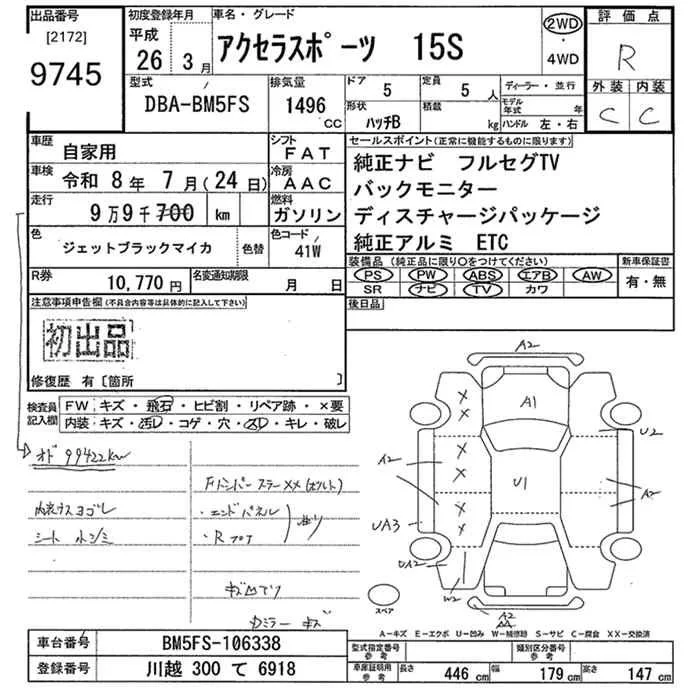 出品番号
[2172]
9745
初度登録年月
平成
26年 3月
車名・グレード
アクセラスポーツ 15S
2WD
・
4WD
評価点
R
外装 内装
C C
型式
DBA-BM5FS
排気量
1496 CC
ドア 5
定員 5 人
ディーラー・並行
形状 ハッチB
積載 kg
モデル年式 年
ハンドル 左・右
車歴 自家用
シフト FAT
車検 令和 8年 7月(24日)
冷房 AAC
走行 9万9千700 km
燃料 ガソリン
色 ジェットブラックマイカ
色替
色コード 41W
R券 10,770円
名変通知期限 月 日
セールスポイント(正常に機能するものに限ります)
純正ナビ フルセグTV
バックモニター
ディスチャージパッケージ
純正アルミ ETC
装備品(純正品に限り○をつけてください)
新車保証書
PS PW ABS エアB AW
SR ナビ TV カワ
有・無
後日品
注意事項申告欄(不具合内容等は具体的に記入して下さい)
初出品
修復歴 有〔箇所 〕
検査員記入欄
FW キズ・飛石・ヒビ割・リペア跡・×要
内装 キズ・汚レ・コゲ・穴・スレ・キレ・破レ
オド 99422km
内装ウスヨゴレ
シート
・エンドパネル
キズ
A2
A1
U2
A2
U1
A2
UA3
UA2
W2
A2
スペア
A-キズ E-エクボ U-凹み W-補修跡 S-サビ C-腐食 XX-交換済
車台番号 BM5FS-106338
登録番号 川越 300 て 6918
型式指定番号 参考
類別区分番号 参考
車庫証明用 参考
長さ 446 cm
幅 179 cm
高さ 147 cm